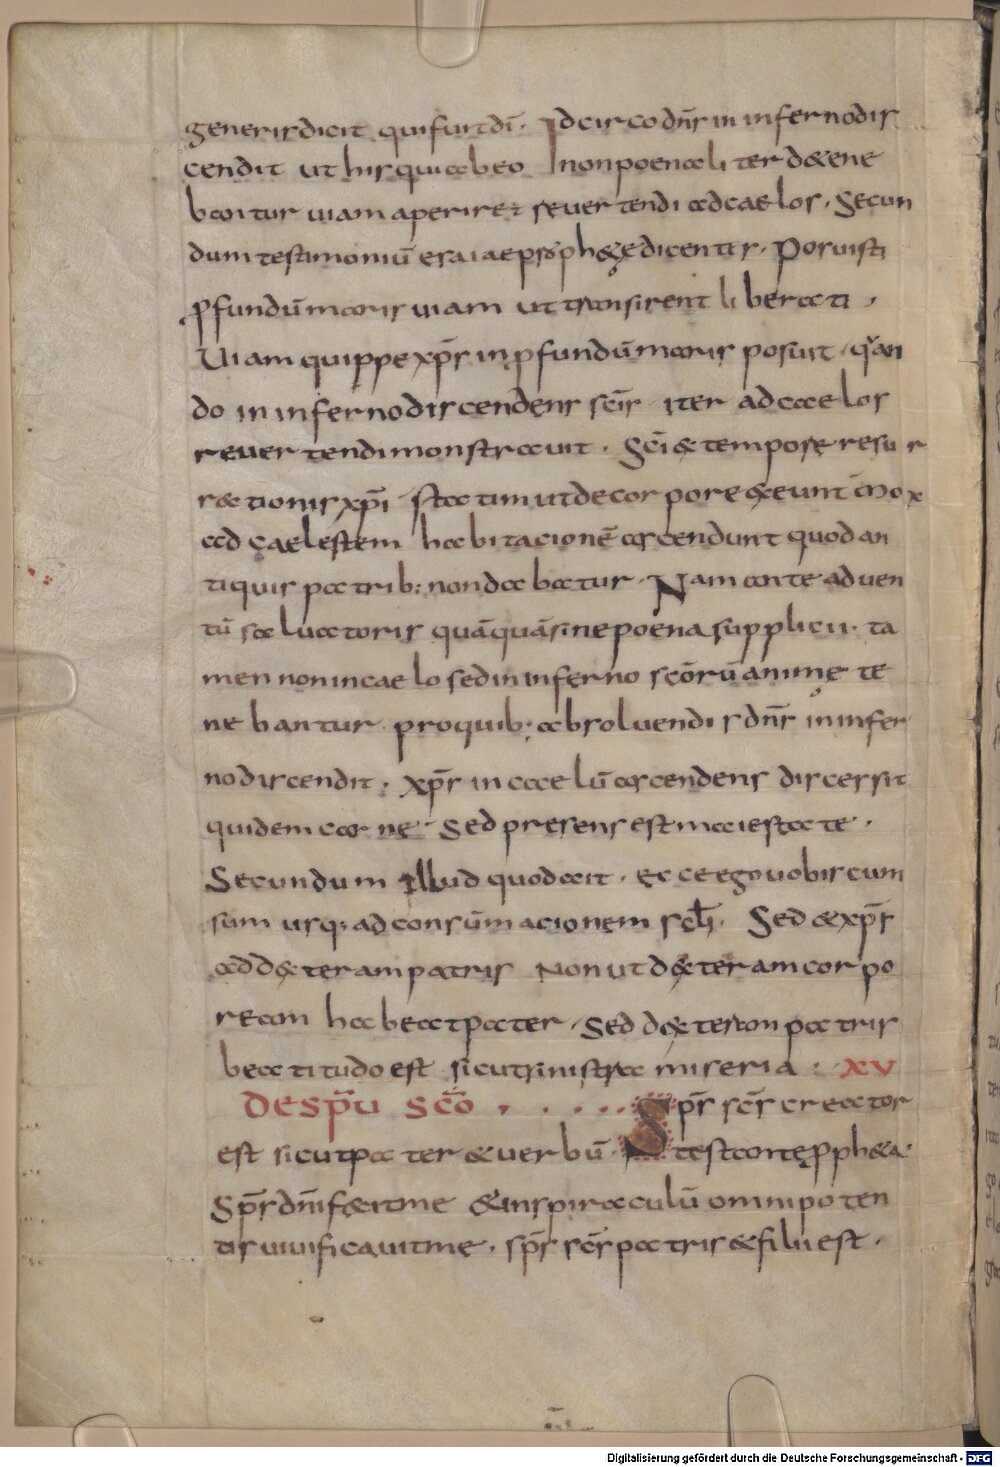 generis dicit qui fuit dī. Idcirco dn̄s in inferno dis
cendit ut his qui ab eo non poenaliter detene
bantur uiam aperiret reuertendi ad caelos. Secun
dum testimoniū esaiae prophetę dicentis. Posuisti
ꝓfundū maris uiam ut transirent liberati.
Uiam quippe xp̄s in ꝓfundū maris posuit. quan
do in inferno discendens sc̄is iter ad caelos
reuertendi monstrauit. Sc̄i & tempore resur
r&tionis xp̄i statim ut de corpore exeunt mox
ad caelestem habitacionē ascendunt quod an
tiquis patrib; non dabatur. Nam ante aduen
tū saluatoris quāquā sine poena supplicii. ta
men non in caelo sed in inferno sc̄orū anime te
nebantur. pro quib; absoluendis dn̄s in infer
no discendit. Xp̄s in caelū ascendens discessit
quidem carne. Sed presens est maiestate.
Secundum illud quod ait. Ecce ego uobiscum
sum usq; ad consūmacionem sc̄li. Sed & xp̄s
ad d&teram patris Non ut d&teram corpo
ream habeat pater. Sed d&tera patris
beatitudo est sicut sinistra miseria. XV
DE SPŪ SC̄O . . . . . Sp̄s sc̄s creator
est sicut pater & uerbū. Testante ꝓph&a.
Sp̄s dn̄i fecit me & inspiraculū omnipoten
tis uiuificauit me. sp̄s sc̄s patris & filii est.
Digitalisierung gefördert durch die Deutsche Forschungsgemeinschaft - DFG